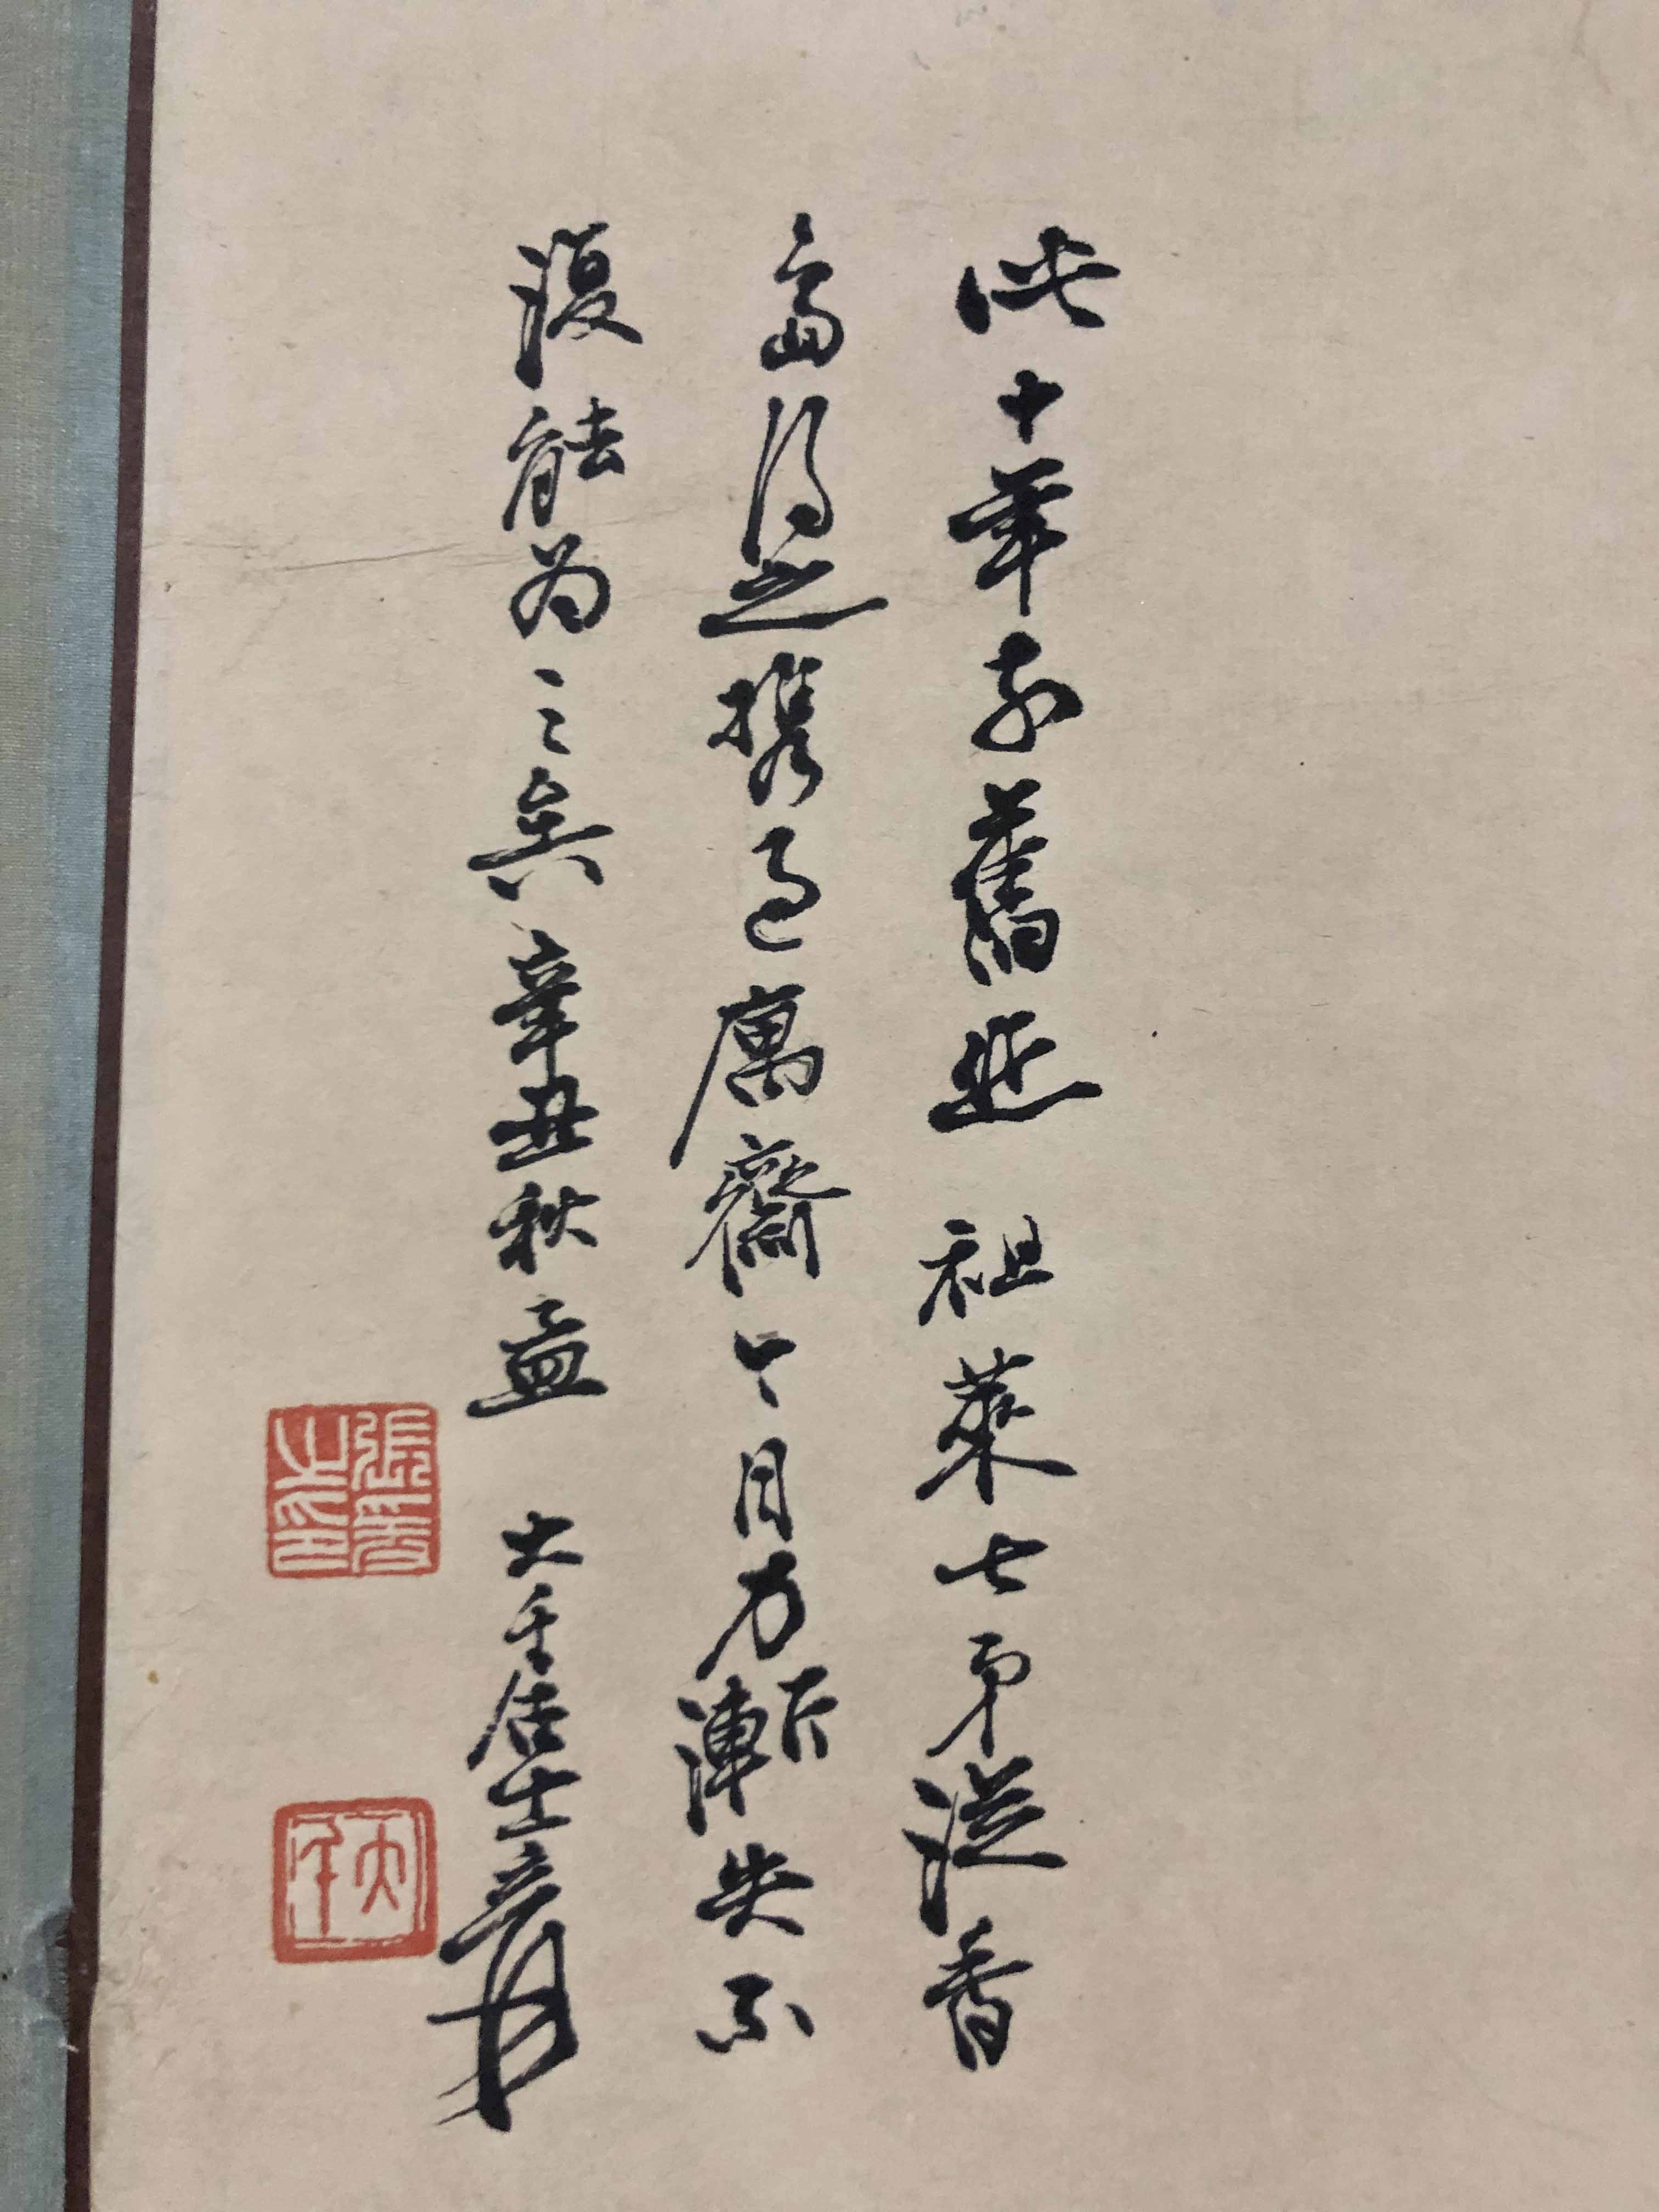 此十年前舊跡祖萊七弟從香
島得之携過寓齋今目力漸失不
復能為之矣辛丑秋孟大千居士爰
張爰之印
大千